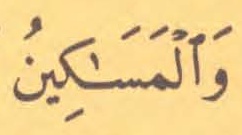 وَٱلْمَسَـٰكِينُ